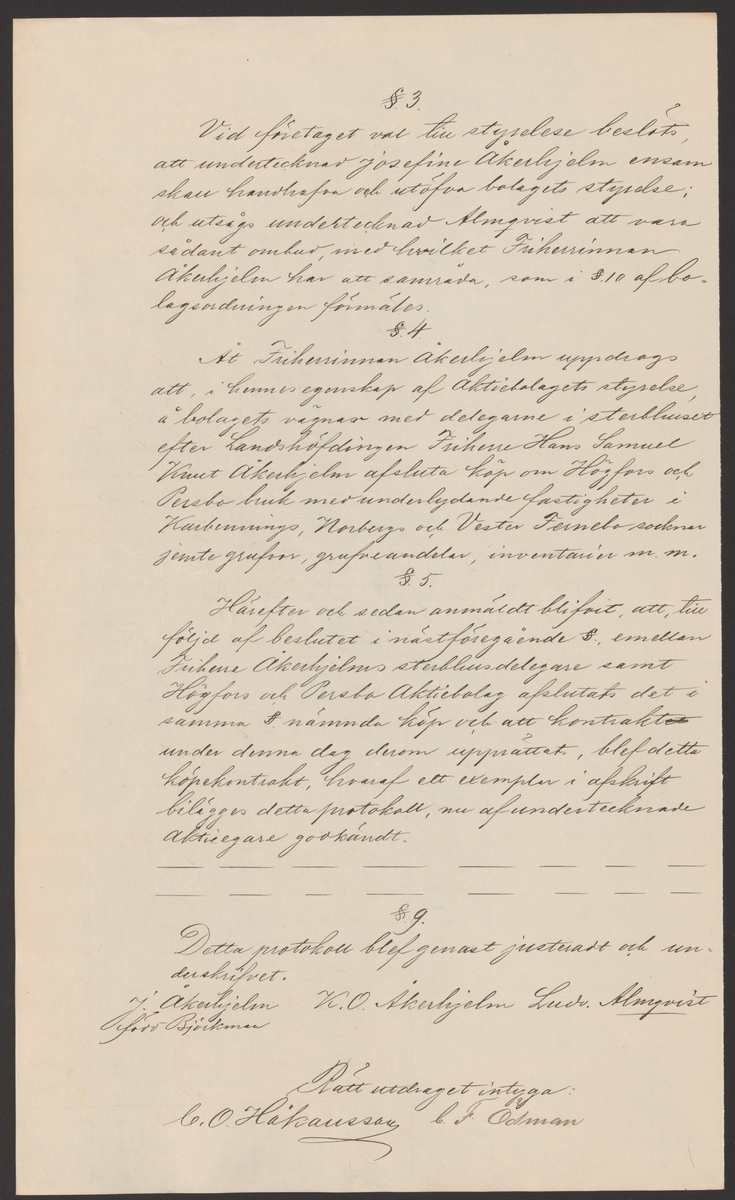 § 3.
Vid företaget val till styrelse beslöts,
att undertecknad Josefine Åkerhjelm ensam
skall handhafva och utöfva bolagets styrelse;
och utsågs undertecknad Almqvist att vara
sådant ombud, med hvilket Friherrinnan
Åkerhjelm har att samråda, som i §. 10 af bo-
lagsordningen förmäles.
§. 4
Åt Friherrinnan Åkerhjelm uppdrogs
att, i hennes egenskap af Aktiebolagets styrelse,
å bolagets vägnar med delegarne i sterbhuset
efter Landshöfdingen Friherre Hans Samuel
Knut Åkerhjelm afsluta köp om Högfors och
Persbo bruk med underlydande fastigheter i
Karbennings, Norbergs och Vester Fernebo socknar
jemte grufvor, grufveandelar, inventarier m. m.
§. 5.
Härefter och sedan anmäldt blifvit, att, till
följd af beslutet i nästföregående §., emellan
Friherre Åkerhjelms sterbhusdelegare samt
Högfors och Persbo Aktiebolag afslutats det i
samma § nämnda köp och att kontrakt
under denna dag derom upprättats, blef detta
köpekontrakt, hvaraf ett exemplar i afskrift
bilägges detta protokoll, nu af undertecknade
aktieegare godkändt.
§ 9.
Detta protokoll blef genast justeradt och un-
derskrifvet.
J. Åkerhjelm K. O. Åkerhjelm Ludv. Almqvist
född Björkman
Rätt utdraget intyga:
C. O. Håkansson C. F. Ödman